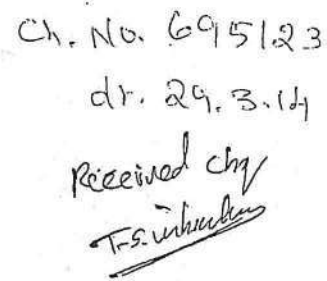 Ch. No. 695123
dt. 29.3.14
Received chq
T.S.